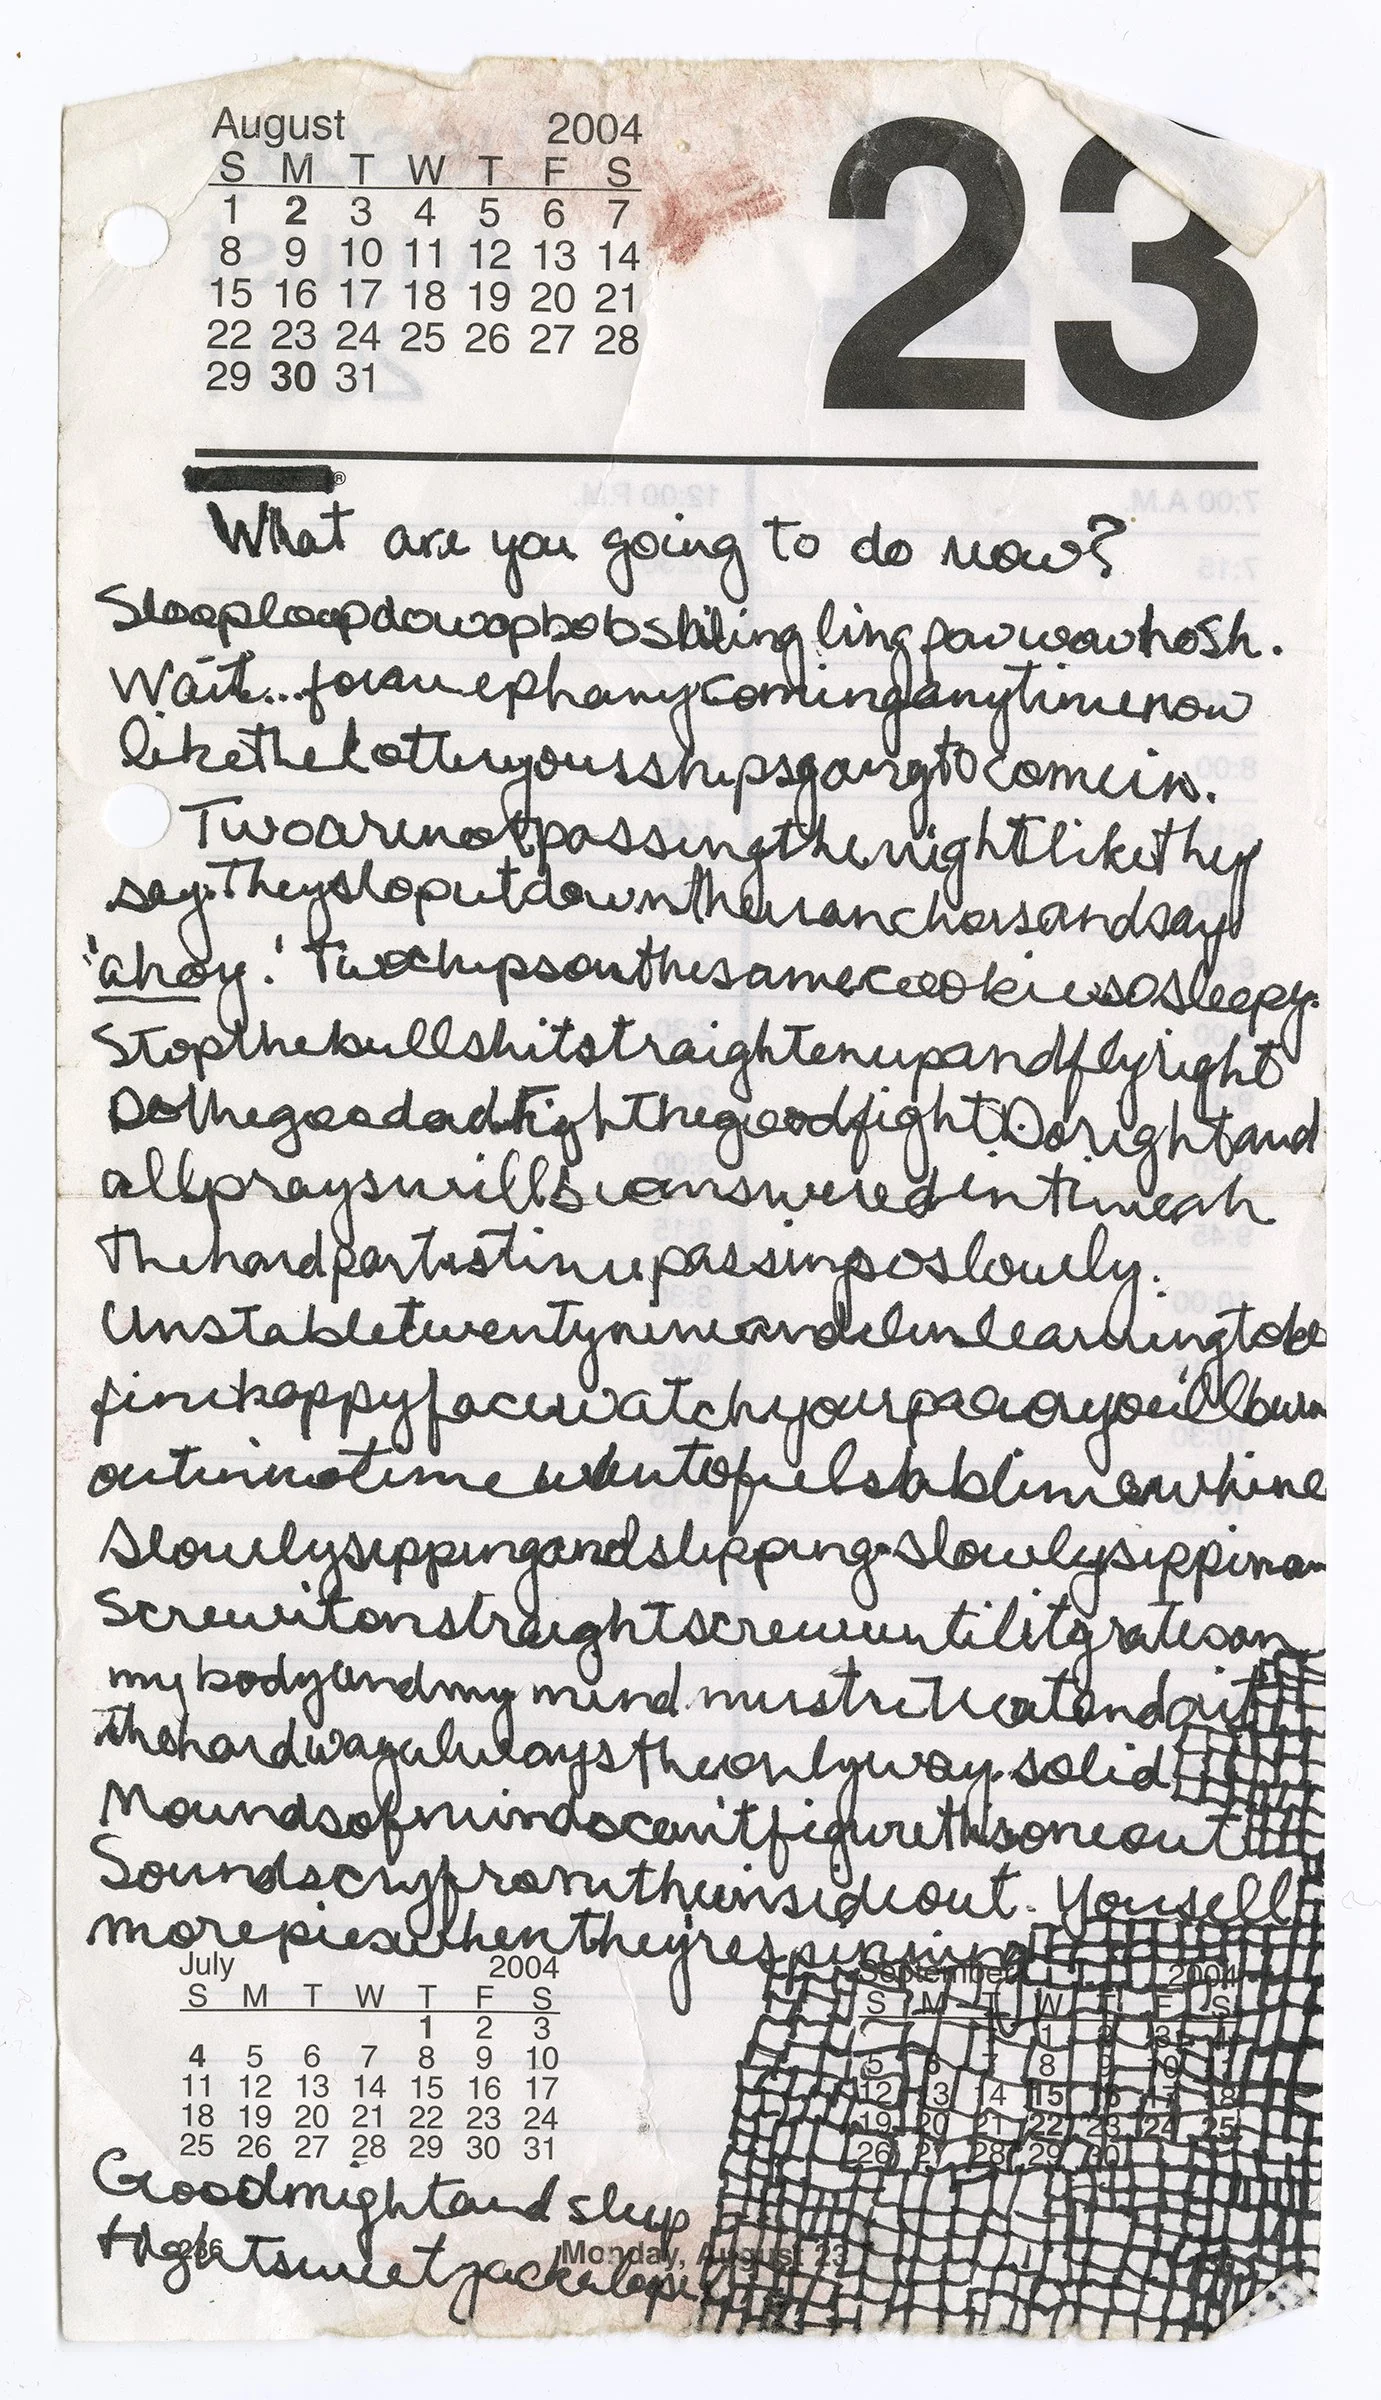 August 2004
S M T W T F S
1 2 3 4 5 6 7
8 9 10 11 12 13 14
15 16 17 18 19 20 21
22 23 24 25 26 27 28
29 30 31
23
®
What are you going to do now?
ling
Wait... foranephanycominganytimenow
likethelotteryoursshipsgoingtocomein.
Twoarenotpassingthenightlikethey
say.Theystoputdowntheiranchorsandsay
'ahoy.' Twochipsonthesamecookiesosleepy.
Stopthebullshitstraightenupandflyright
DothegoodadFightthegoodfightDorightand
allprayswillbeansweredintimeah
thehardpartistimepassingsoslowly.
tobe
finehappyfacewatchyourpaceoryou'llburn
outinnotime
Slowlysippingandslipping-slowlysippinan
Screwitonstraightscrewuntilitgrateson
mybodyandmy mind.
thehardwayalwaystheonlyway.solid
Moundsofmindscan'tfigurethisoneout
Soundscryfromtheinsideout. Yousell
morepieswhenthey'respinning
July 2004
S M T W T F S
1 2 3
4 5 6 7 8 9 10
11 12 13 14 15 16 17
18 19 20 21 22 23 24
25 26 27 28 29 30 31
September 2004
S M T W T F S
1 2 3 4
5 6 7 8 9 10 11
12 13 14 15 16 17 18
19 20 21 22 23 24 25
26 27 28 29 30
Goodnightand sleep
tightsweetjackalope
236 Monday, August 23